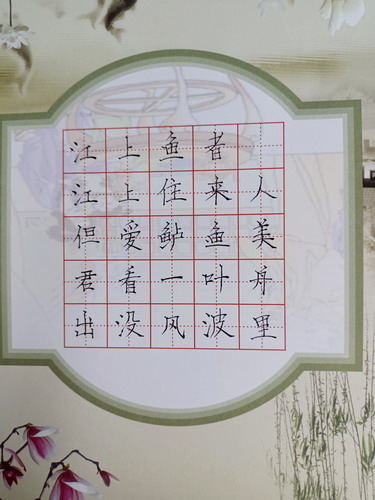 江上鱼者
江上住来人
但爱鲈鱼美
君看一叶舟
出没风波里